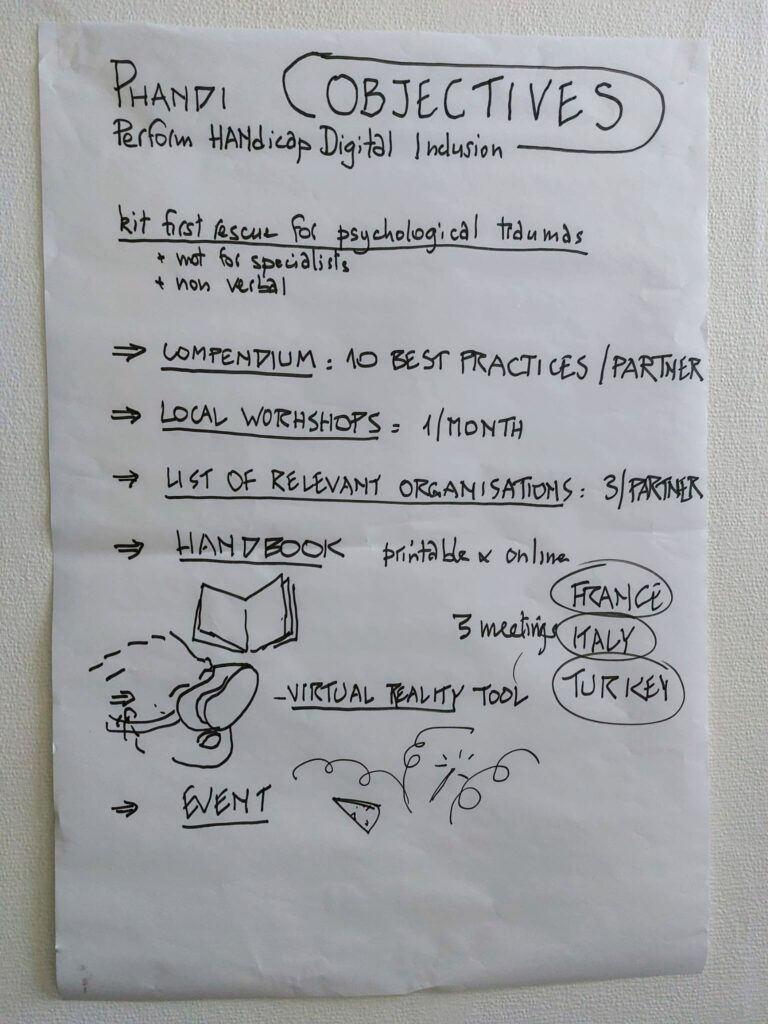 PHANDI OBJECTIVES
Perform HANdicap Digital Inclusion
kit first rescue for psychological traumas
+ not for specialists
+ non verbal
⇒ COMPENDIUM : 10 BEST PRACTICES /PARTNER
⇒ LOCAL WORHSHOPS = 1/MONTH
⇒ LIST OF RELEVANT ORGANISATIONS : 3/PARTNER
⇒ HANDBOOK printable & online
3 meetings FRANCE
ITALY
TURKEY
⇒ - VIRTUAL REALITY TOOL
⇒ EVENT